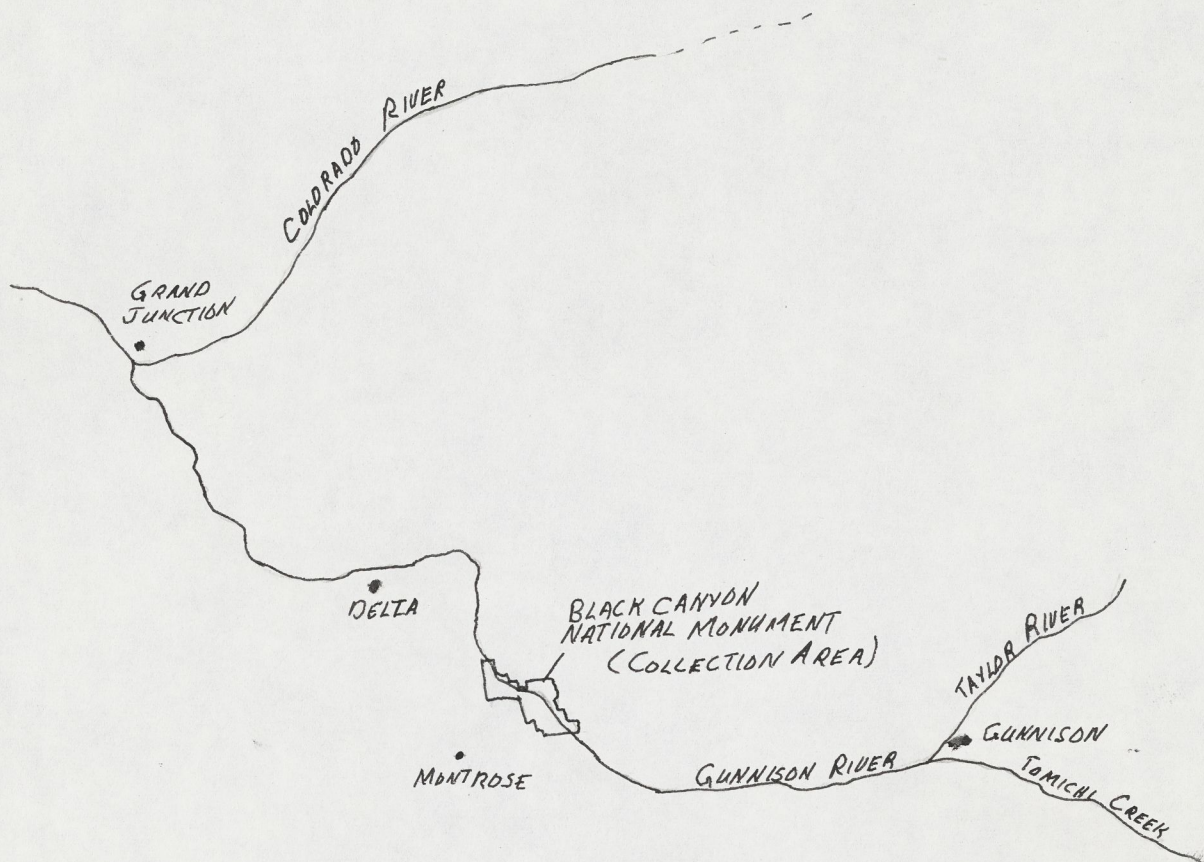 COLORADO RIVER
GRAND
JUNCTION
DELTA
BLACK CANYON
NATIONAL MONUMENT
(COLLECTION AREA)
TAYLOR RIVER
GUNNISON
MONTROSE
GUNNISON RIVER
TOMICHI CREEK